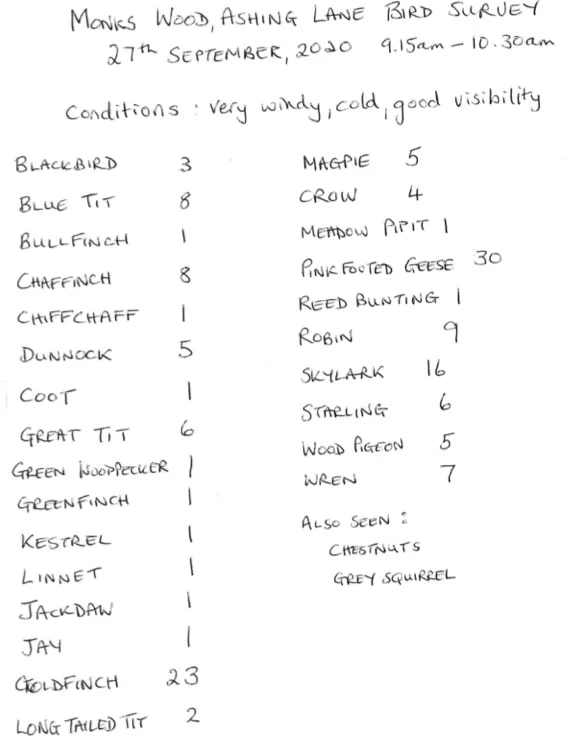 MONKS WOOD, ASHING LANE BIRD SURVEY
27th SEPTEMBER, 2020 9.15am – 10.30am
Conditions : very windy, cold, good visibility
BLACKBIRD 3
BLUE TIT 8
BULLFINCH 1
CHAFFINCH 8
CHIFFCHAFF 1
DUNNOCK 5
COOT 1
GREAT TIT 6
GREEN WOODPECKER 1
GREENFINCH 1
KESTREL 1
LINNET 1
JACKDAW 1
JAY 1
GOLDFINCH 23
LONG TAILED TIT 2
MAGPIE 5
CROW 4
MEADOW PIPIT 1
PINK FOOTED GEESE 30
REED BUNTING 1
ROBIN 9
SKYLARK 16
STARLING 6
WOOD PIGEON 5
WREN 7
ALSO SEEN :
CHESTNUTS
GREY SQUIRREL